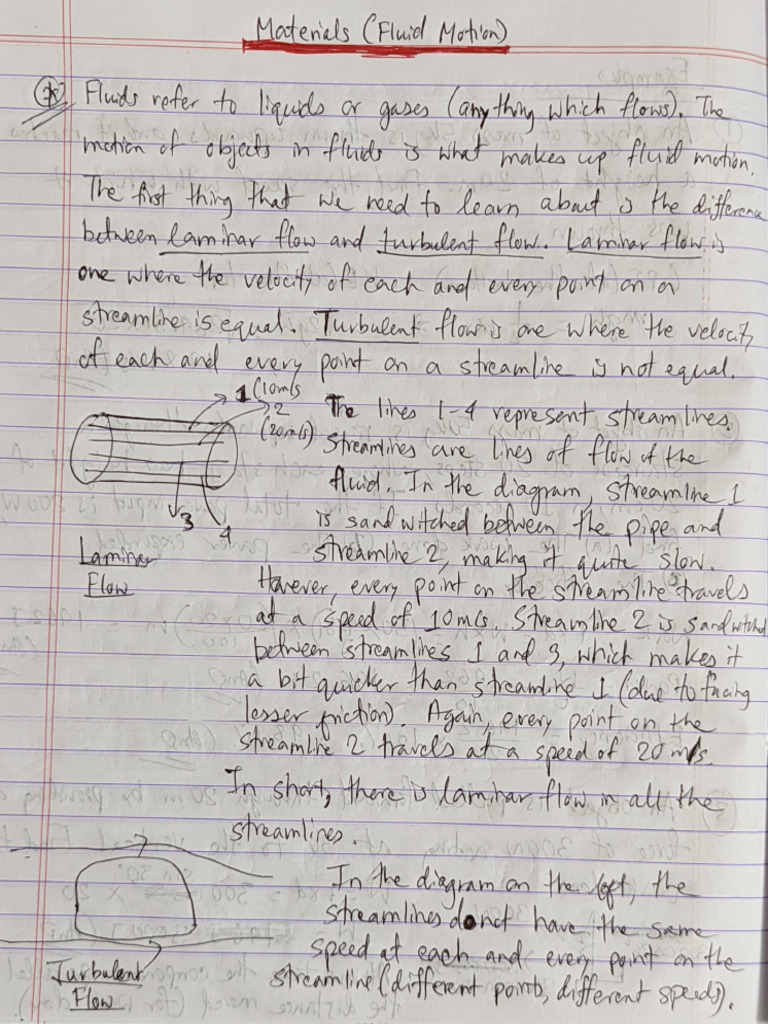 Materials (Fluid Motion)
Fluids refer to liquids or gases (anything which flows). The
motion of objects in fluids is what makes up fluid motion.
The first thing that we need to learn about is the difference
between laminar flow and turbulent flow. Laminar flow is
one where the velocity of each and every point on a
streamline is equal. Turbulent flow is one where the velocity
of each and every point on a streamline is not equal.
1 (10m/s
2
(20m/s)
3
4
Laminar
Flow
The lines 1-4 represent streamlines.
Streamlines are lines of flow of the
fluid. In the diagram, streamline 1
is sandwitched between the pipe and
streamline 2, making it quite slow.
However, every point on the streamline travels
at a speed of 10m/s. Streamline 2 is sandwitched
between streamlines 1 and 3, which makes it
a bit quicker than streamline 1 (due to facing
lesser friction). Again, every point on the
streamline 2 travels at a speed of 20 m/s.
In short, there is laminar flow in all the
streamlines.
Turbulent
Flow
In the diagram on the left, the
streamlines donot have the same
speed at each and every point on the
streamline (different points, different speeds).